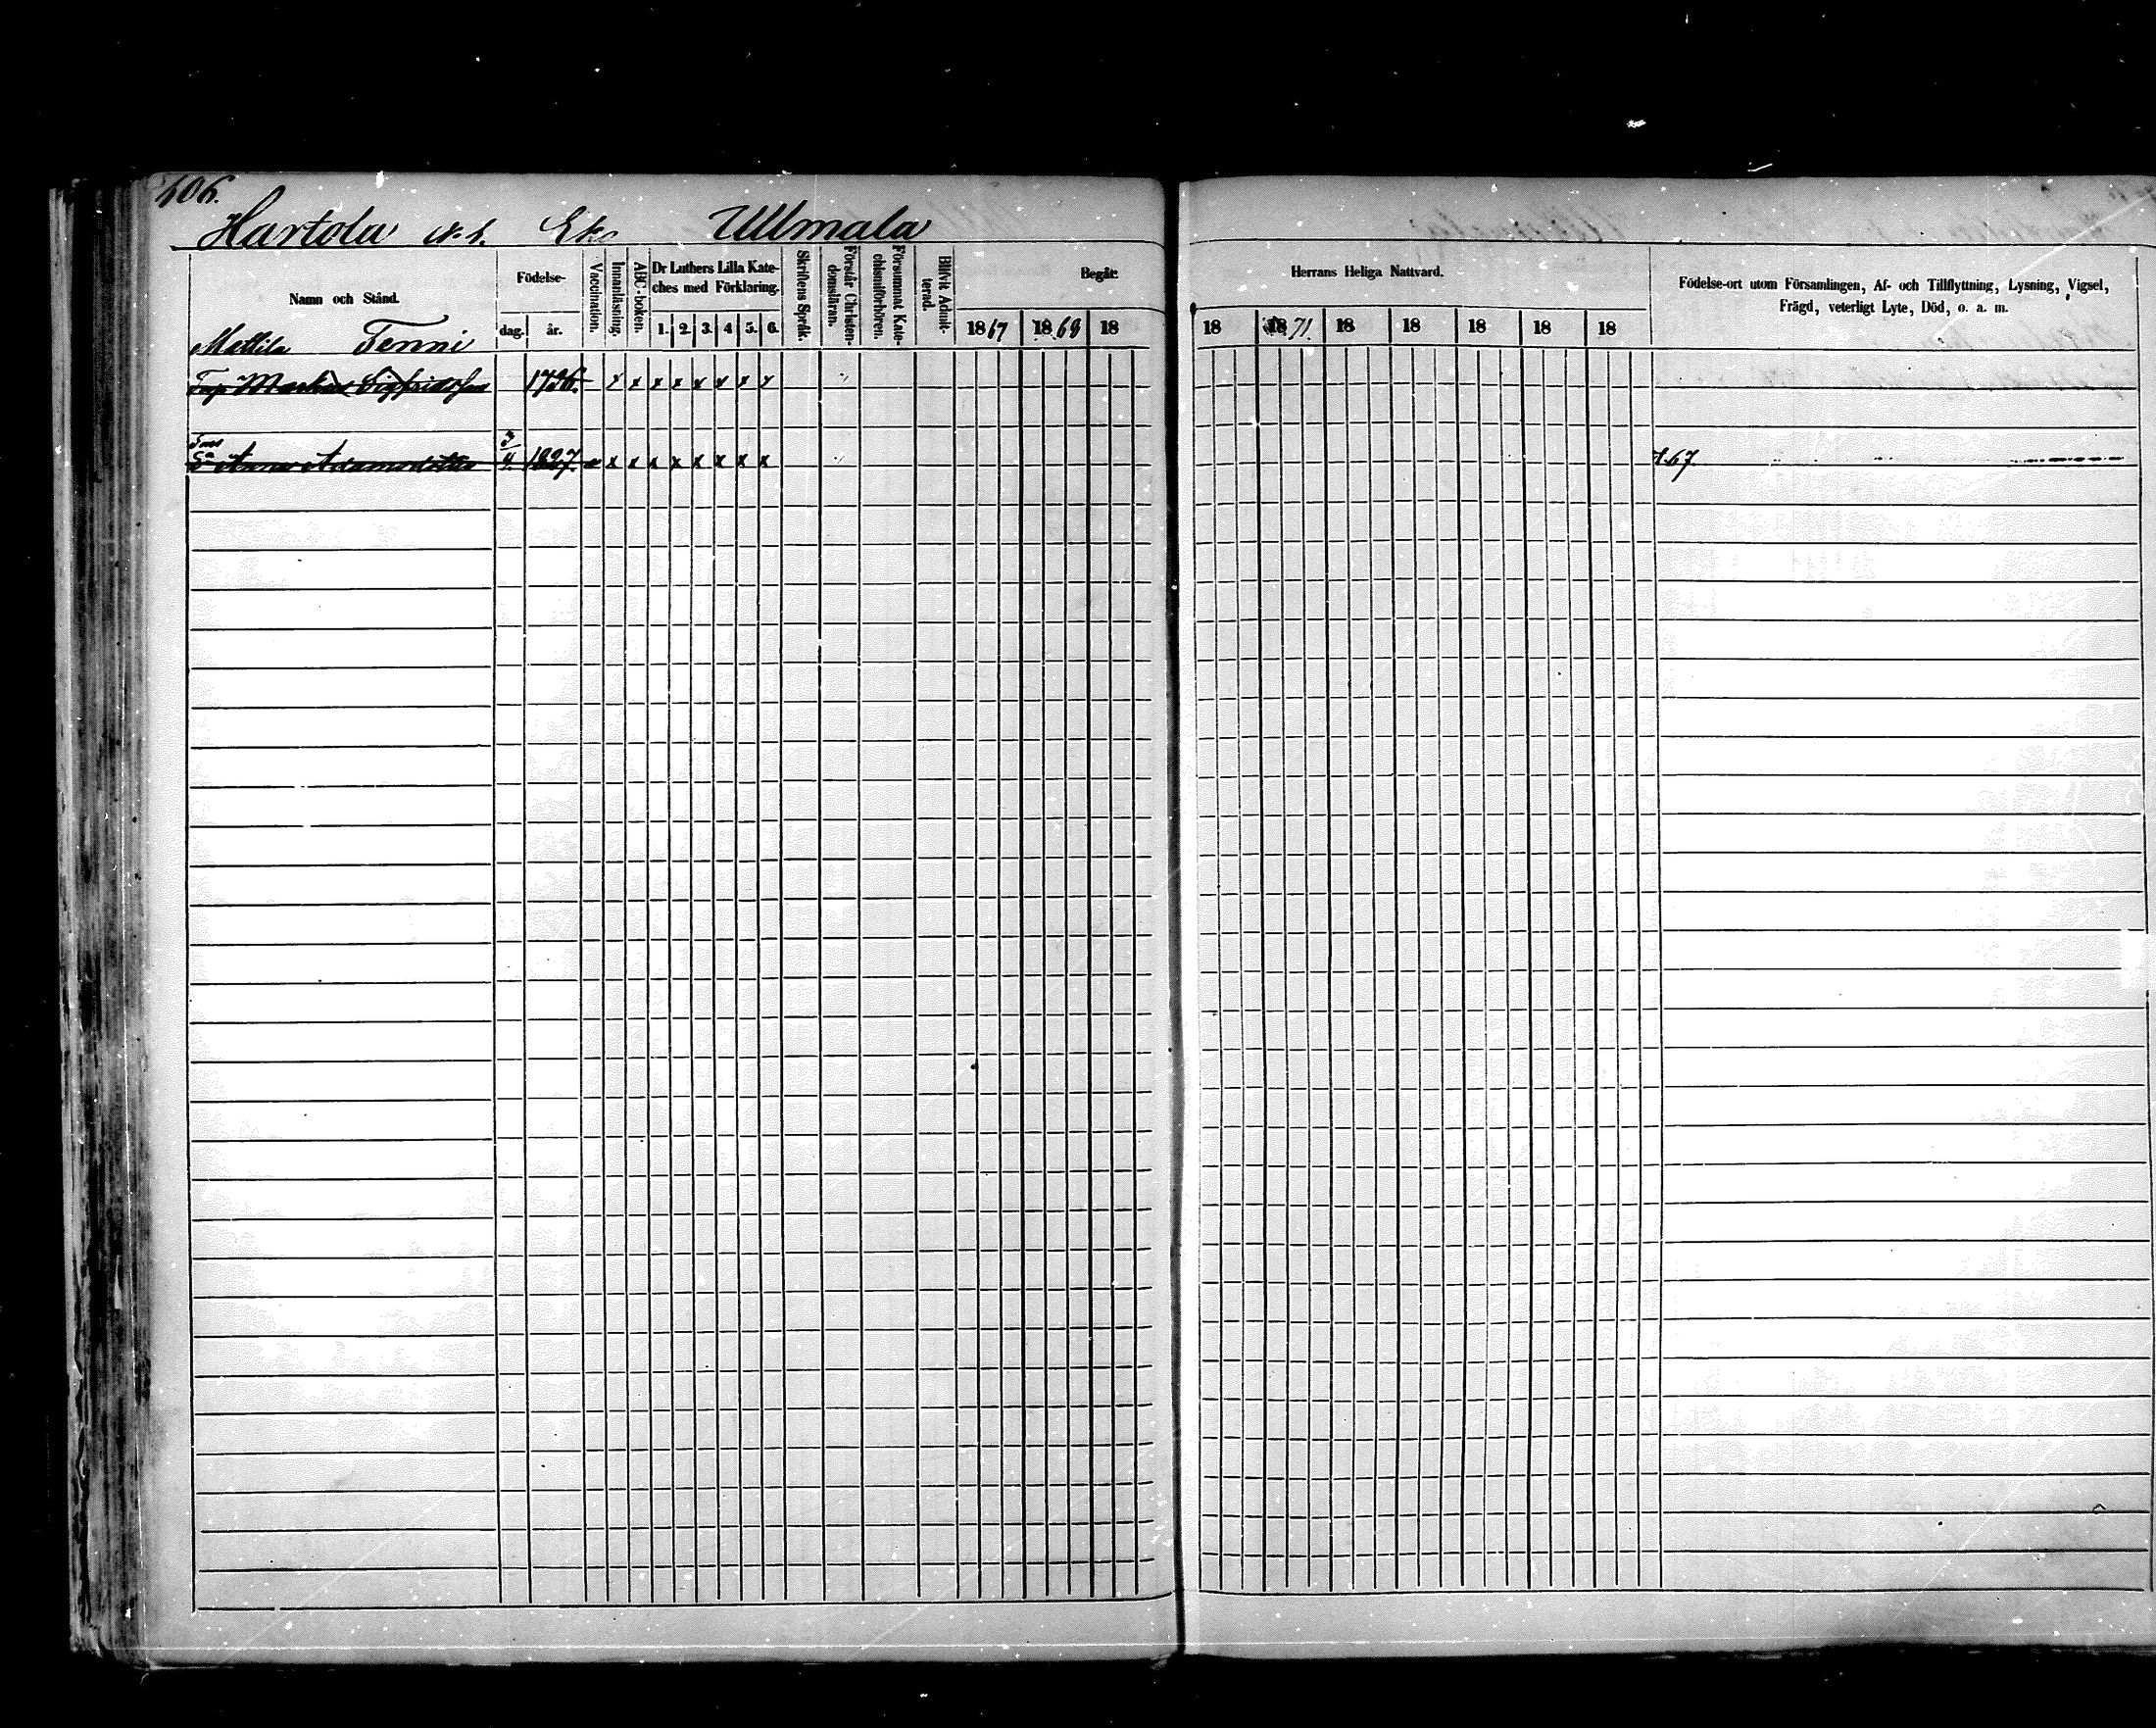 406.
Hartola Ullmala
Namn och Stånd.
Födelse-
dag. år.
Vaccination.
Innanläsning.
ABC-boken.
Dr Luthers Lilla Kate-
ches med Förklaring.
1. 2. 3. 4 5. 6.
Skriftens Språk.
Förstår Christen-
domsläran.
Försummat Kate-
chismiförhören.
Blifvit Admit-
terad.
Begått
1867 1868 18
Herrans Heliga Nattvard.
18 1871. 18 18 18 18 18
Födelse-ort utom Församlingen, Af- och Tillflyttning, Lysning, Vigsel,
Frägd, veterligt Lyte, Död, o. a. m.
Mattila Tenni
Markus Sigfridsson 1796. x x x x x x x x
Anna Adamsdotter 3/4 1827. x x x x x x x x
67.